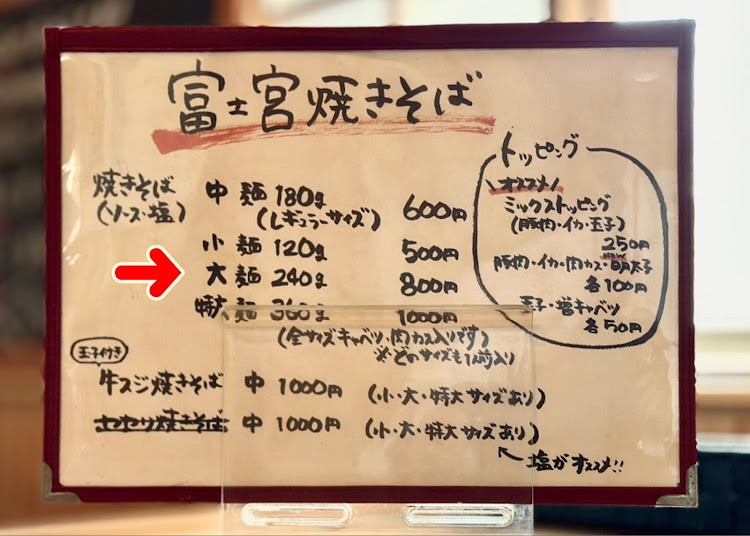 富士宮焼きそば
焼きそば
(ソース・塩)
中 麺 180g
(レギュラーサイズ)
600円
小 麺 120g 500円
大 麺 240g 800円
特大 麺 360g 1000円
(全サイズキャベツ・肉カス入りです)
※どのサイズも1人前入り
玉子付き
牛スジ焼きそば 中 1000円 (小・大・特大サイズあり)
中 1000円 (小・大・特大サイズあり)
塩がオススメ!!
トッピング
\オススメ/
ミックストッピング
(豚肉・イカ・玉子)
250円
NEW
豚肉・イカ・肉カス・明太子
各100円
玉子・増キャベツ
各50円